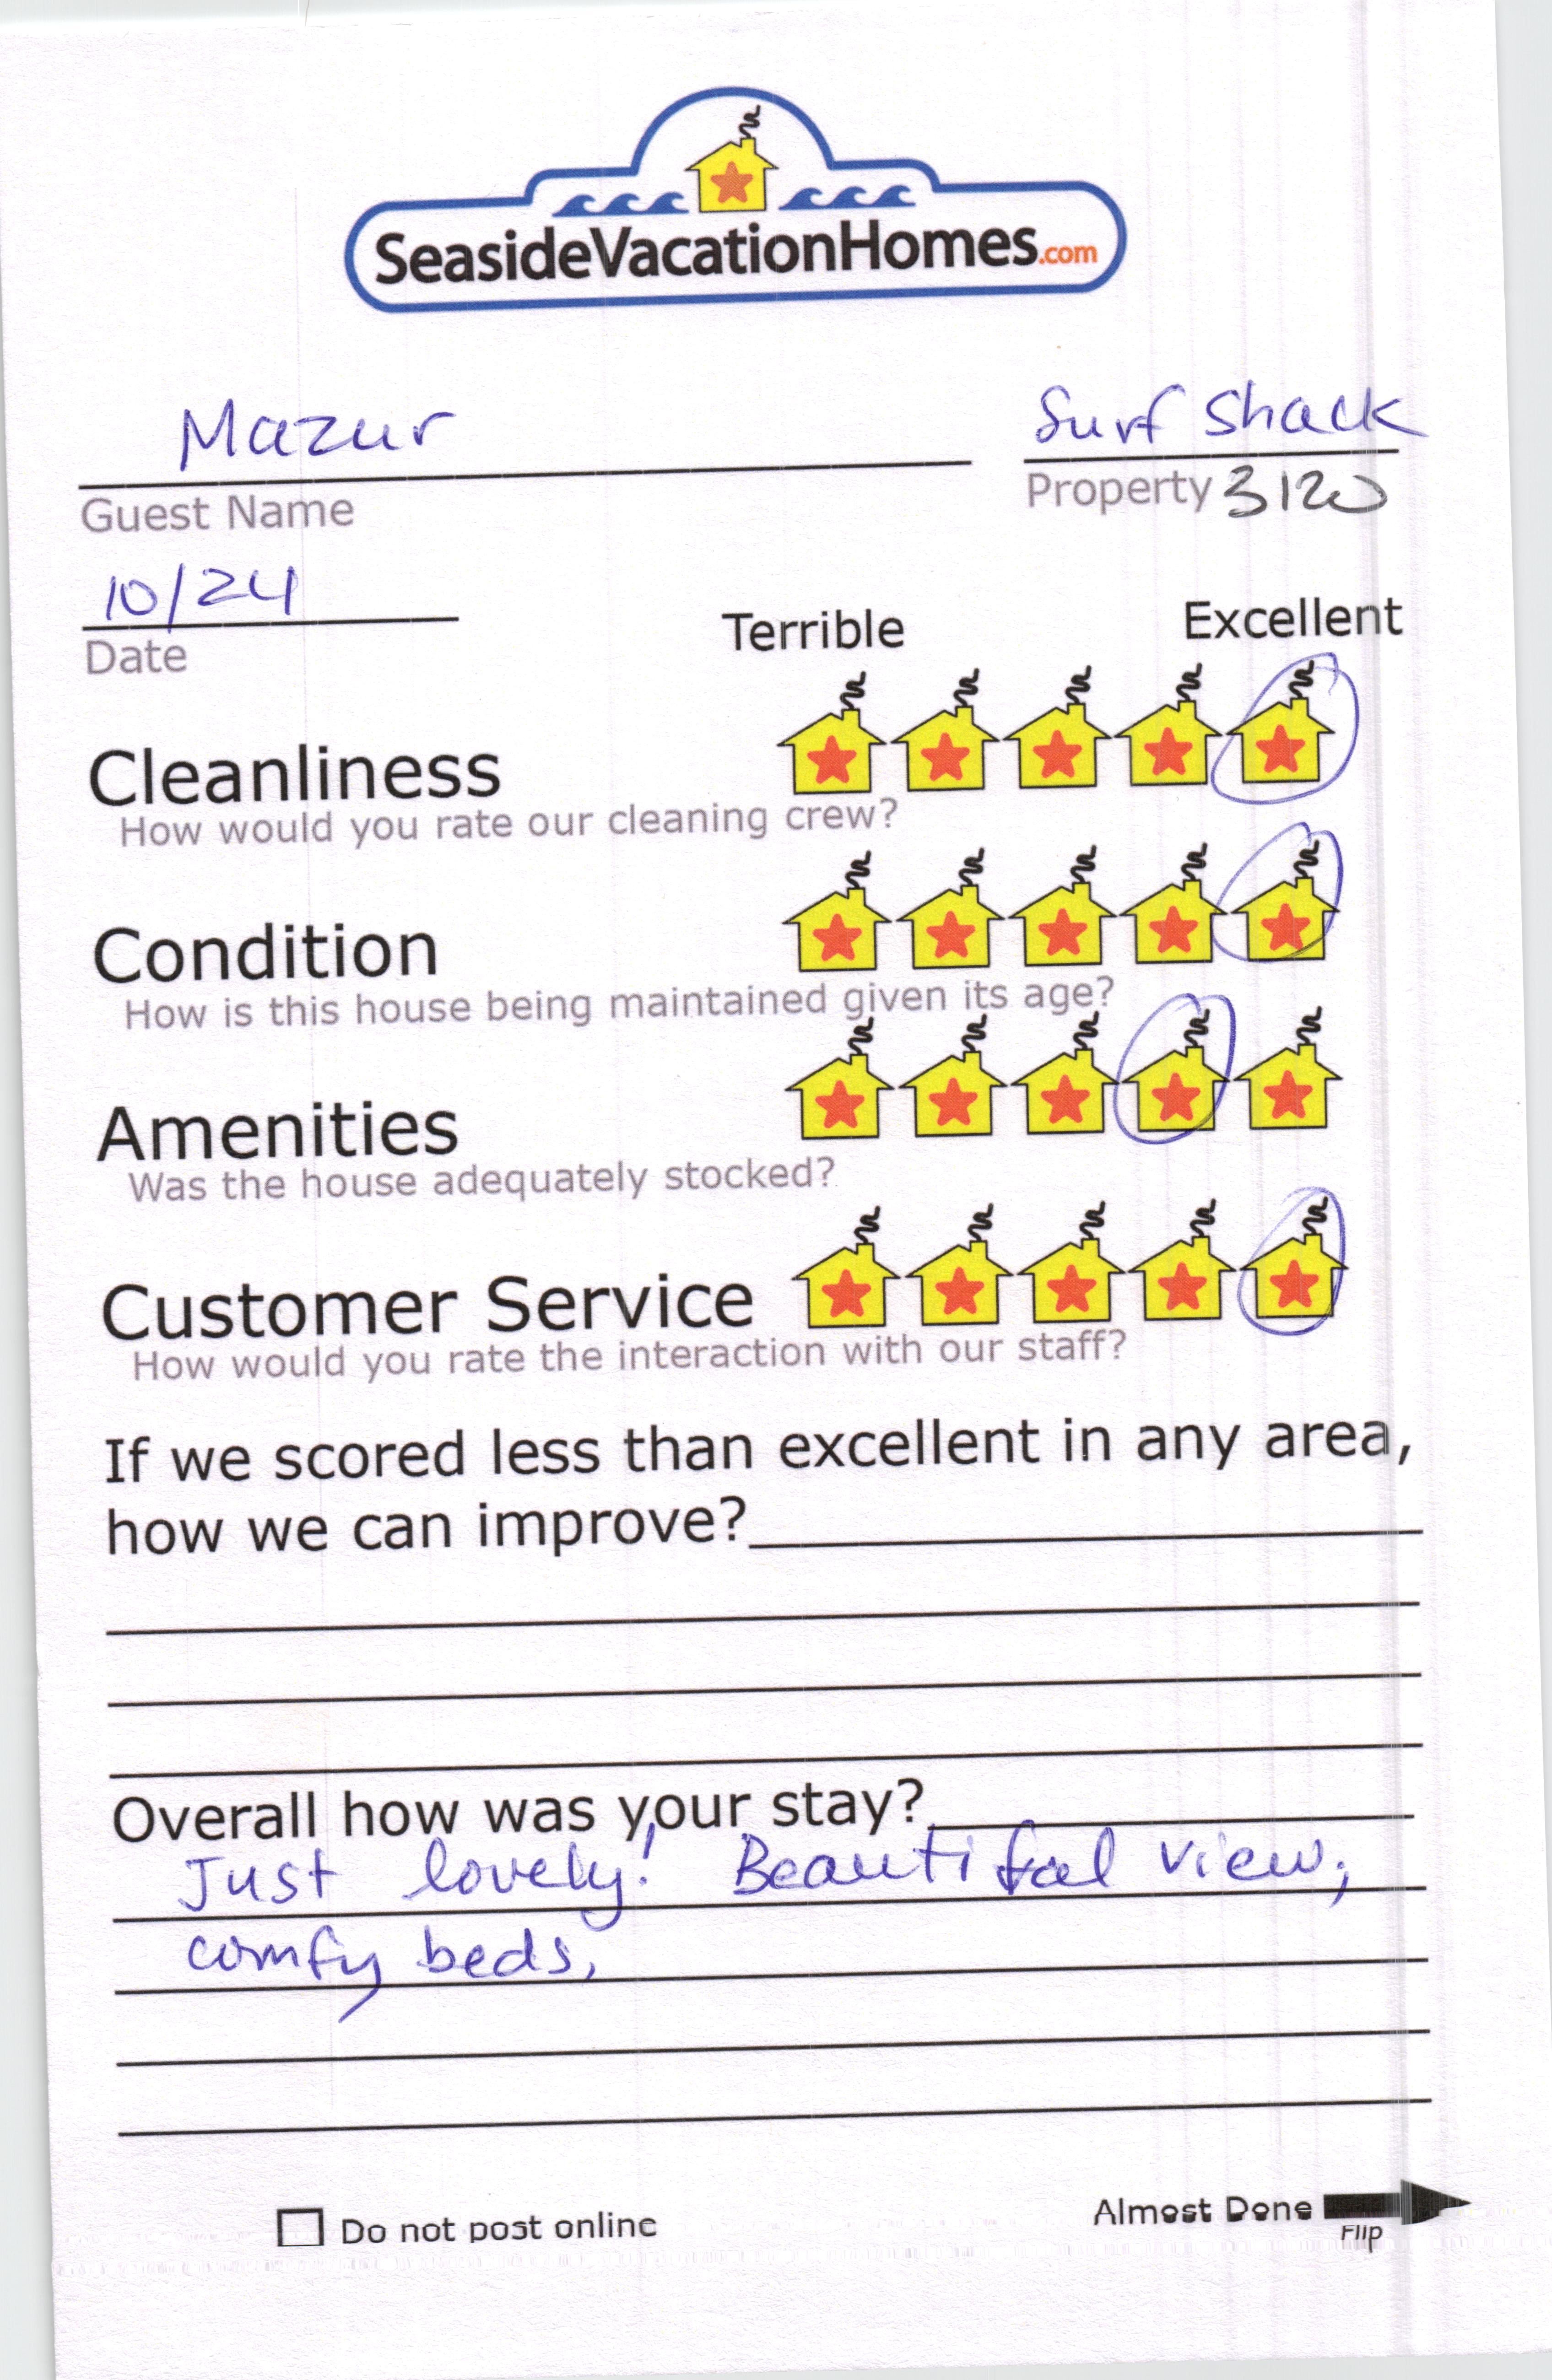 SeasideVacationHomes.com
Mazur
Surf Shack
Guest Name
Property 3120
10/24
Date
Terrible Excellent
Cleanliness
How would you rate our cleaning crew?
Condition
How is this house being maintained given its age?
Amenities
Was the house adequately stocked?
Customer Service
How would you rate the interaction with our staff?
If we scored less than excellent in any area,
how we can improve?
Overall how was your stay?
Just lovely! Beautiful view,
comfy beds.
Do not post online
Almost Done
Flip